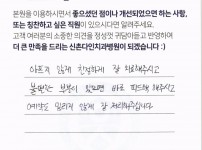 본원을 이용하시면서 좋으셨던 점이나 개선되었으면 하는 사항,
또는 칭찬하고 싶은 직원이 있으시다면 알려주세요.
고객 여러분의 소중한 의견을 정성껏 귀담아듣고 반영하여
더 큰 만족을 드리는 신촌다인치과병원이 되겠습니다 :)
아프지 않게 친절하게 잘 치료해주시고
불편한 부분이 있으면 바로 피드백 해주시고
예약도 밀리지 않게 잘 처리해주십니다